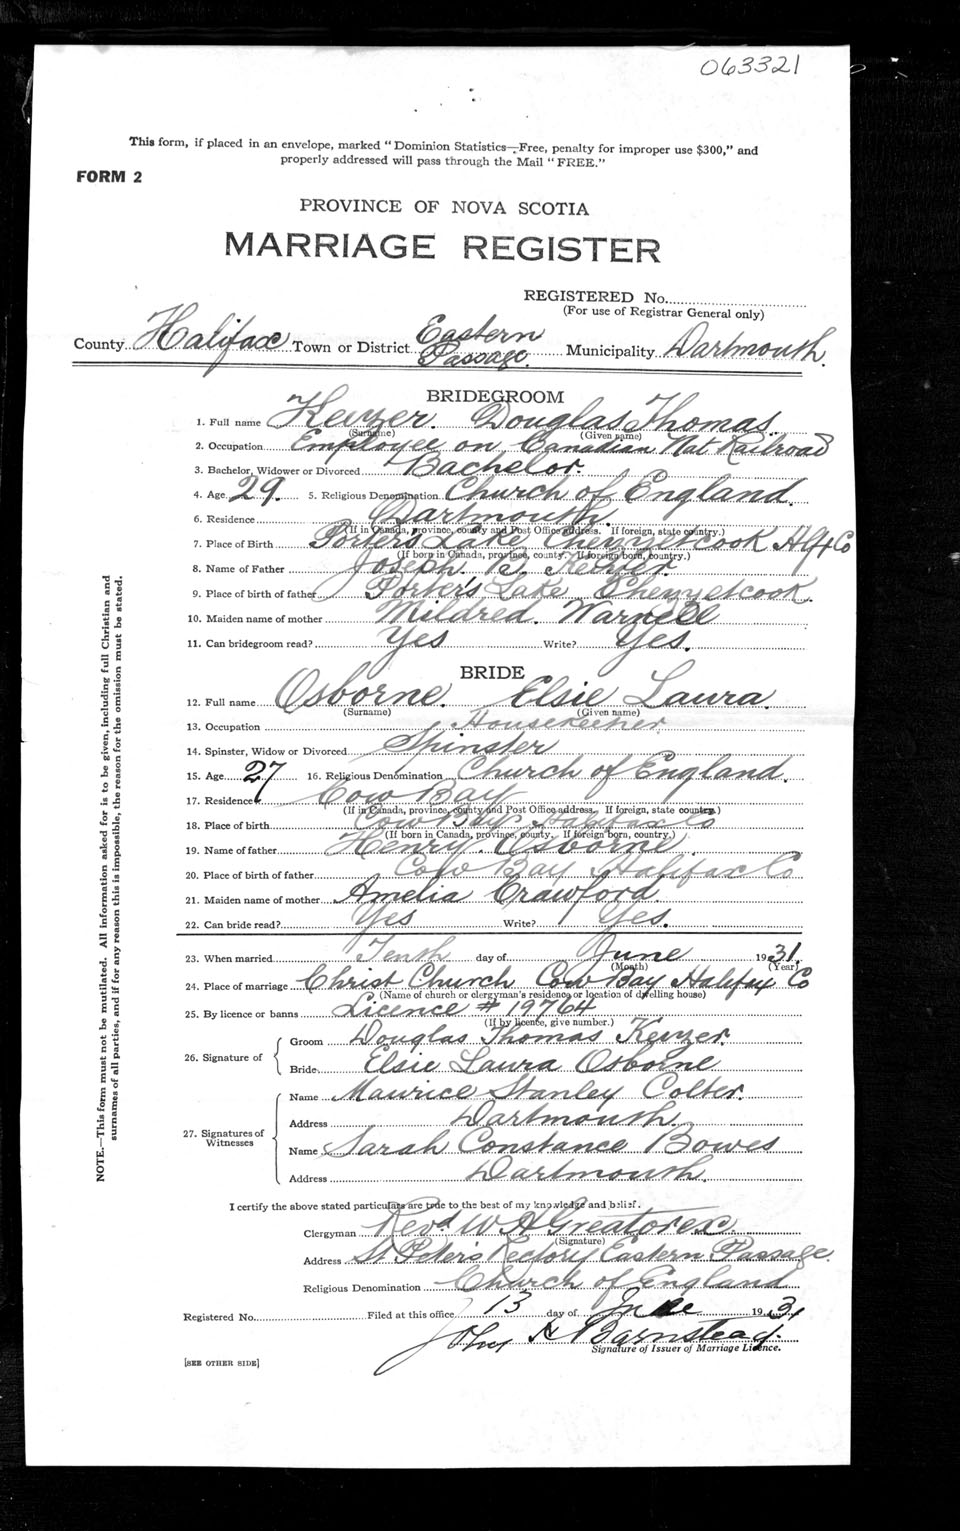 063321
This form, if placed in an envelope, marked "Dominion Statistics—Free, penalty for improper use $300," and
properly addressed will pass through the Mail "FREE."
FORM 2
PROVINCE OF NOVA SCOTIA
MARRIAGE REGISTER
REGISTERED No.
(For use of Registrar General only)
County Halifax Town or District Eastern Passage. Municipality Dartmouth.
BRIDEGROOM
1. Full name Keyzer. Douglas Thomas.
(Surname) (Given name)
2. Occupation Employee on Canadian Nat Railroad
3. Bachelor, Widower or Divorced Bachelor.
4. Age 29. 5. Religious Denomination Church of England.
6. Residence Dartmouth.
(If in Canada, province, county and Post Office address. If foreign, state country.)
7. Place of Birth Porter's Lake Chezzetcook Hlfx Co
(If born in Canada, province, county. If foreign born, country.)
8. Name of Father Joseph. Keyzer.
9. Place of birth of father Porter's Lake Chezzetcook.
10. Maiden name of mother Mildred. Warnell
11. Can bridegroom read? Yes Write? Yes.
BRIDE
12. Full name Osborne. Elsie Laura.
(Surname) (Given name)
13. Occupation Housekeeper
14. Spinster, Widow or Divorced Spinster
15. Age 27 16. Religious Denomination Church of England.
17. Residence Cow Bay
(If in Canada, province, county and Post Office address. If foreign, state country.)
18. Place of birth Cow Bay Halifax Co
(If born in Canada, province, county. If foreign born, country.)
19. Name of father Henry. Osborne.
20. Place of birth of father Cow Bay Halifax Co
21. Maiden name of mother Amelia Crawford.
22. Can bride read? Yes Write? Yes.
23. When married Tenth day of June 1931.
(Month) (Year)
24. Place of marriage Christ Church Cow Bay Halifax Co
(Name of church or clergyman's residence or location of dwelling house)
25. By licence or banns Licence # 19764
(If by licence, give number.)
26. Signature of
Groom Douglas Thomas Keyzer.
Bride Elsie Laura Osborne
27. Signatures of Witnesses
Name Maurice Stanley Colter.
Address Dartmouth.
Name Sarah Constance Bowes
Address Dartmouth.
I certify the above stated particulars are true to the best of my knowledge and belief.
Clergyman Revd W A Greatorex.
(Signature)
Address St Peter's Rectory Eastern Passage.
Religious Denomination Church of England
Registered No. Filed at this office 13 day of June 1931
John H Barnstead.
Signature of Issuer of Marriage Licence.
[SEE OTHER SIDE]
NOTE.—This form must not be mutilated. All information asked for is to be given, including full Christian and
surnames of all parties, and if for any reason this is impossible, the reason for the omission must be stated.